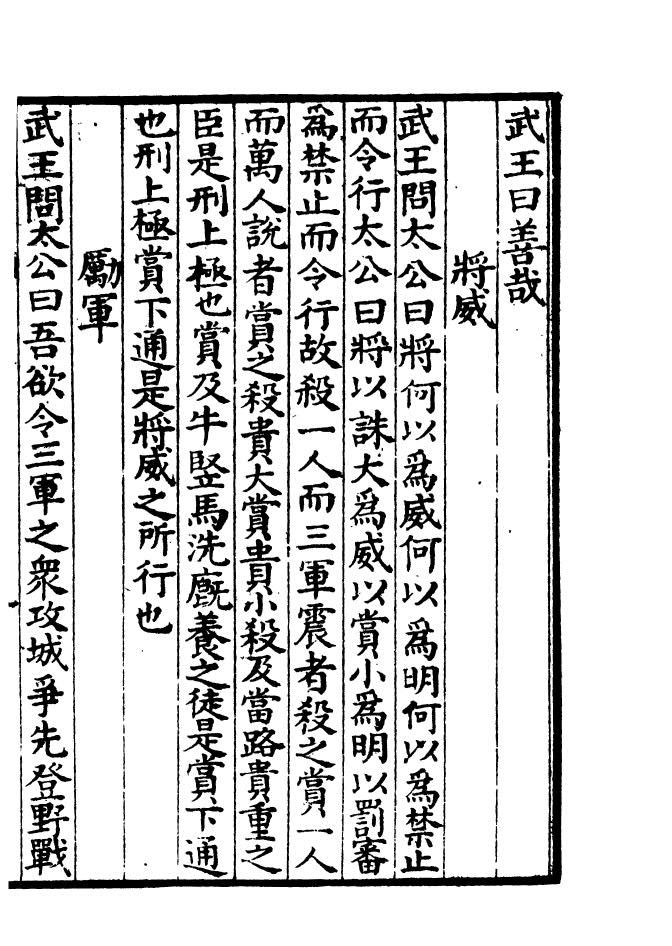 武王曰善哉
將威
武王問太公曰將何以爲威何以爲明何以爲禁止
而令行太公曰將以誅大爲威以賞小爲明以罰審
爲禁止而令行故殺一人而三軍震者殺之賞一人
而萬人說者賞之殺貴大賞貴小殺及當路貴重之
臣是刑上極也賞及牛竪馬洗廐養之徒是賞下通
也刑上極賞下通是將威之所行也
勵軍
武王問太公曰吾欲令三軍之衆攻城爭先登野戰